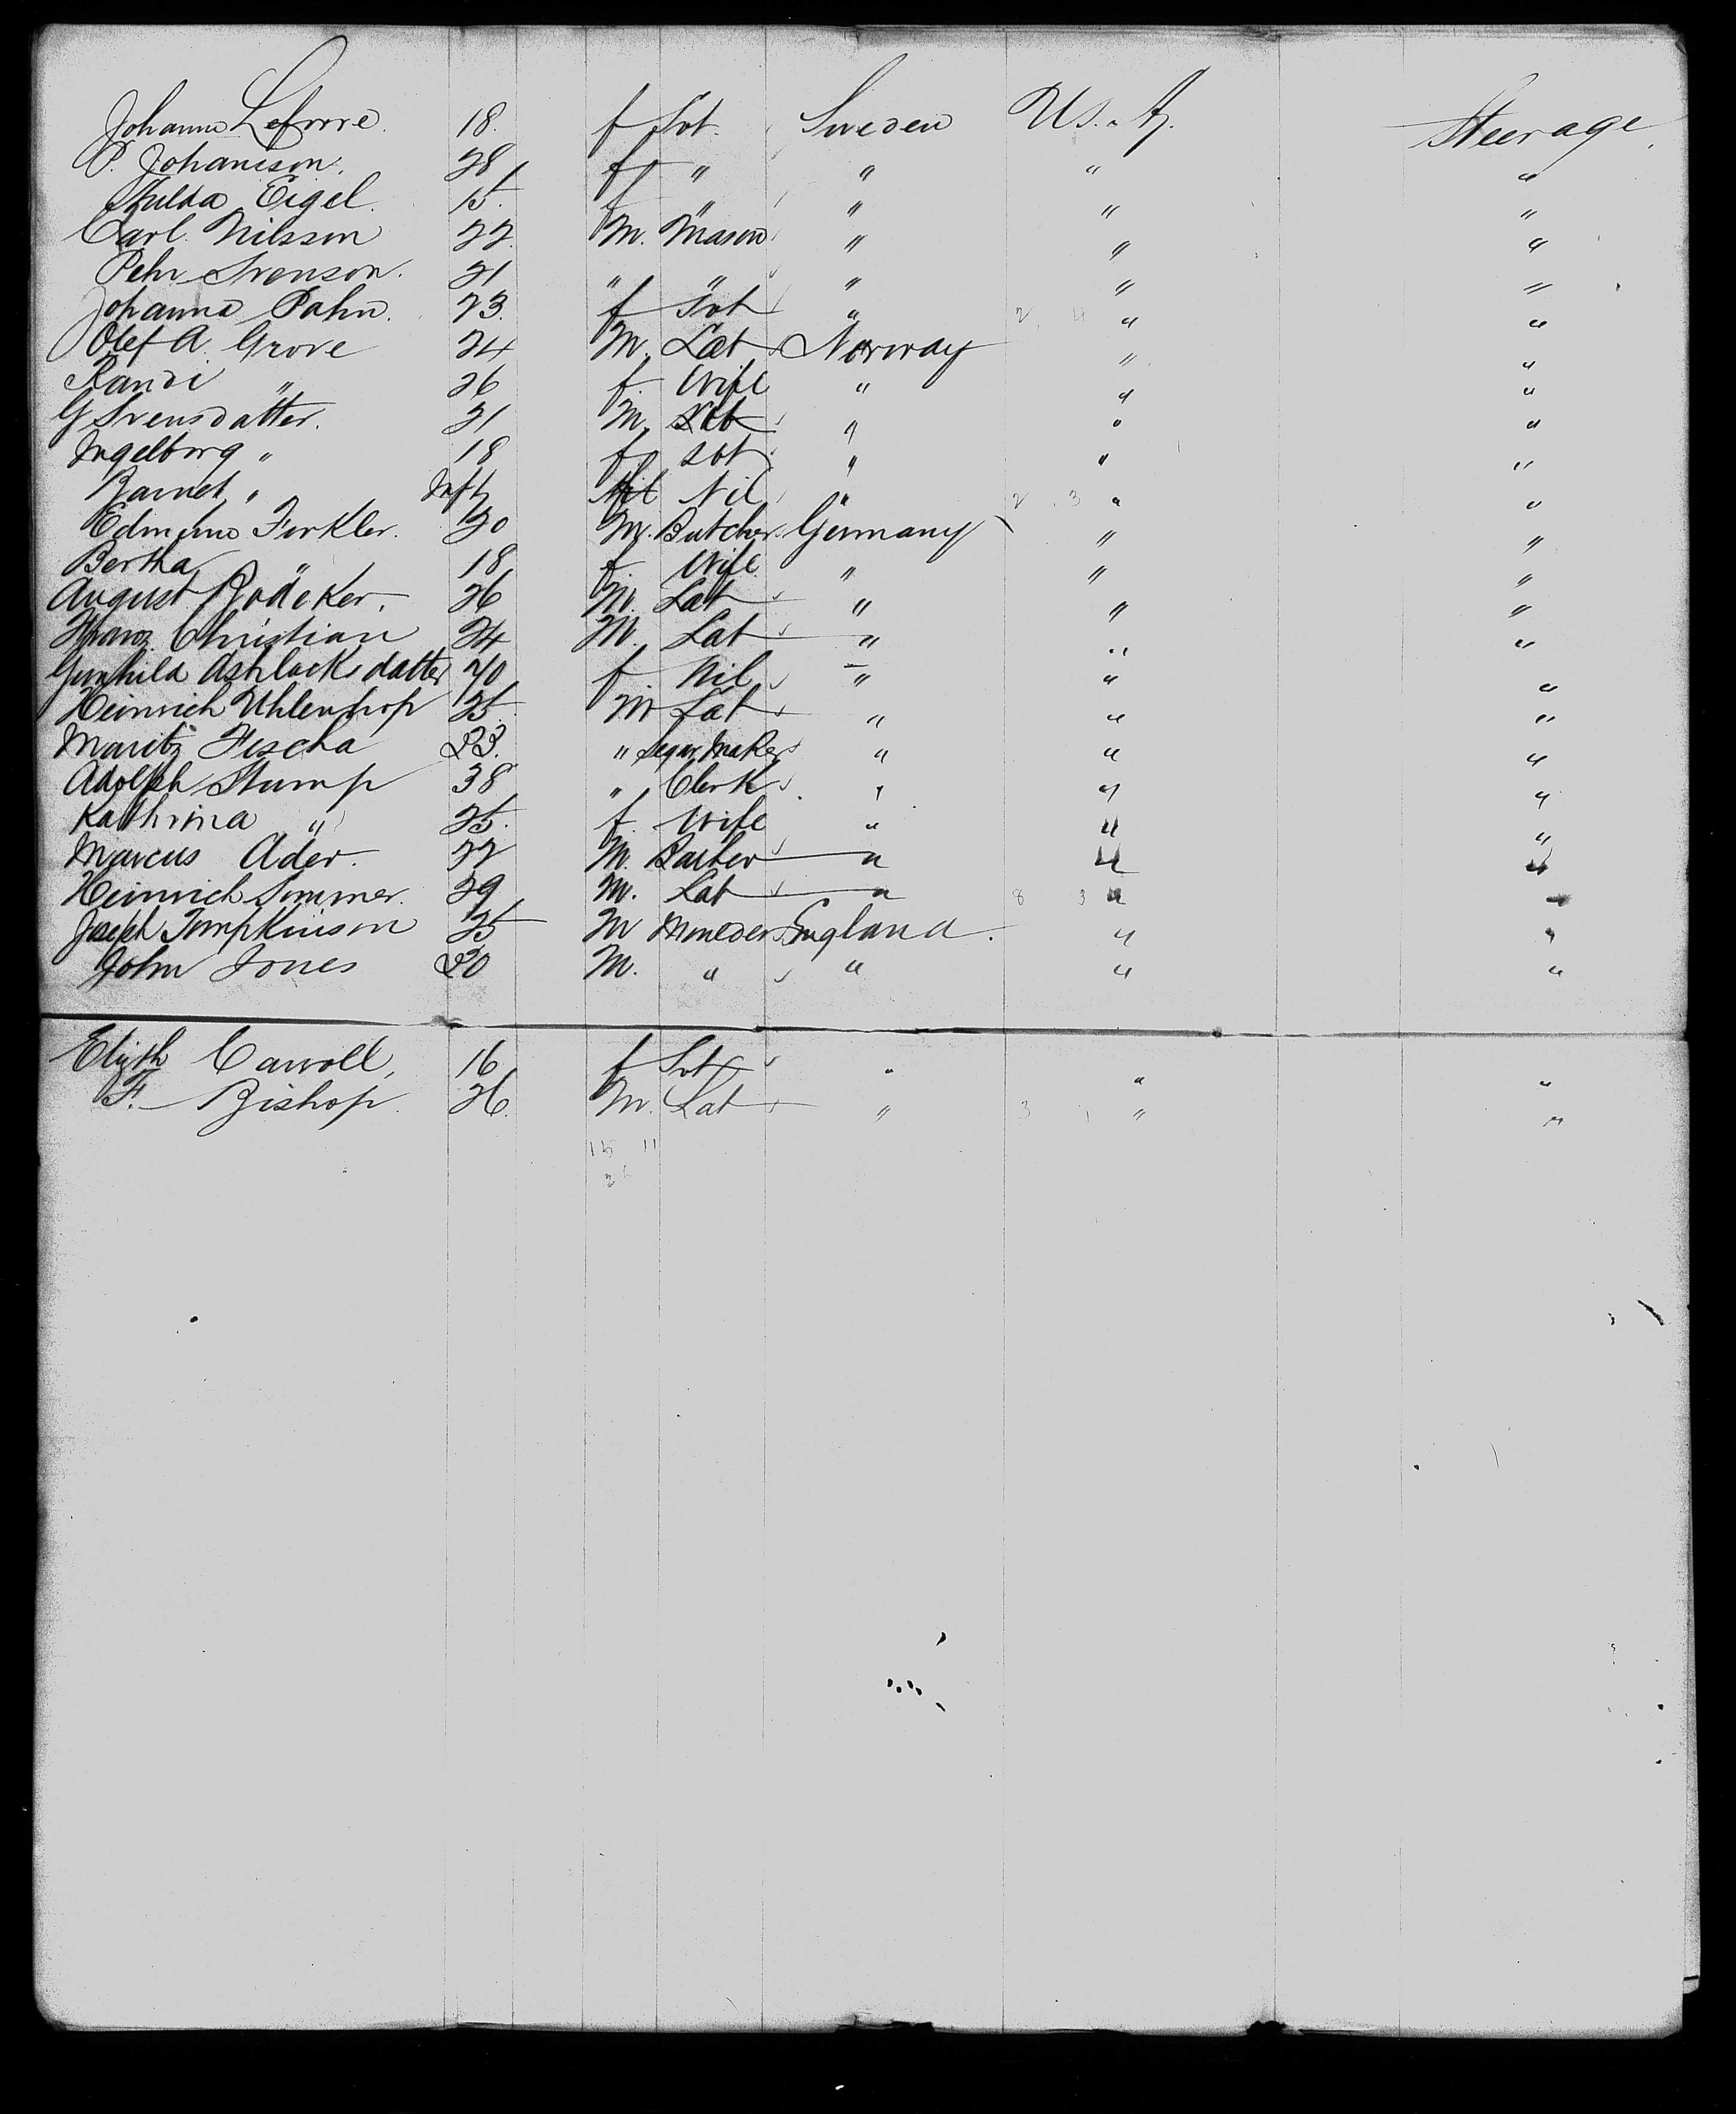 Johanna Lefvrre. 18. f Svt. Sweden U.S.A. Steerage.
P. Johanison. 28 f " " " "
Hulda Eigel. 15. f " " " "
Carl Nilsson 22. M. Mason " " "
Pehr Svenson. 21 " " " " "
Johanna Pahn. 23. f Svt " " "
Olef A Grove 24 M. Lab Norway " "
Randi " 26 f. Wife " " "
G Svensdatter. 21 M. " " "
Ingelborg " 18 f. svt " " "
Barnet " Inft Nil " " "
Edmund Finkler. 20 M. Butcher Germany " "
Bertha " 18 f. Wife " " "
August Bödeker. 26 M. Lab " " "
Franz Christian 24 M. Lab " " "
Gunhild Ashlocksdatter 20 f Nil " " "
Heinrich Uhlenhop 25. M Lab " " "
Maritz Fischa 23. " Segar Maker " " "
Adolph Stump 38 " Clerk " " "
Kathrina " 25. f. Wife " " "
Marcus Ader. 22 M. Barber " " "
Heinrich Sommer. 29 M. Lab " 8 3 " "
Joseph Tompkinson 25 M England. " "
John Jones 20 M. " " " "
Elizth Carroll, 16 f Svt " " "
F. Bishop. 26. M. Lab " 3 " "
15 11
26